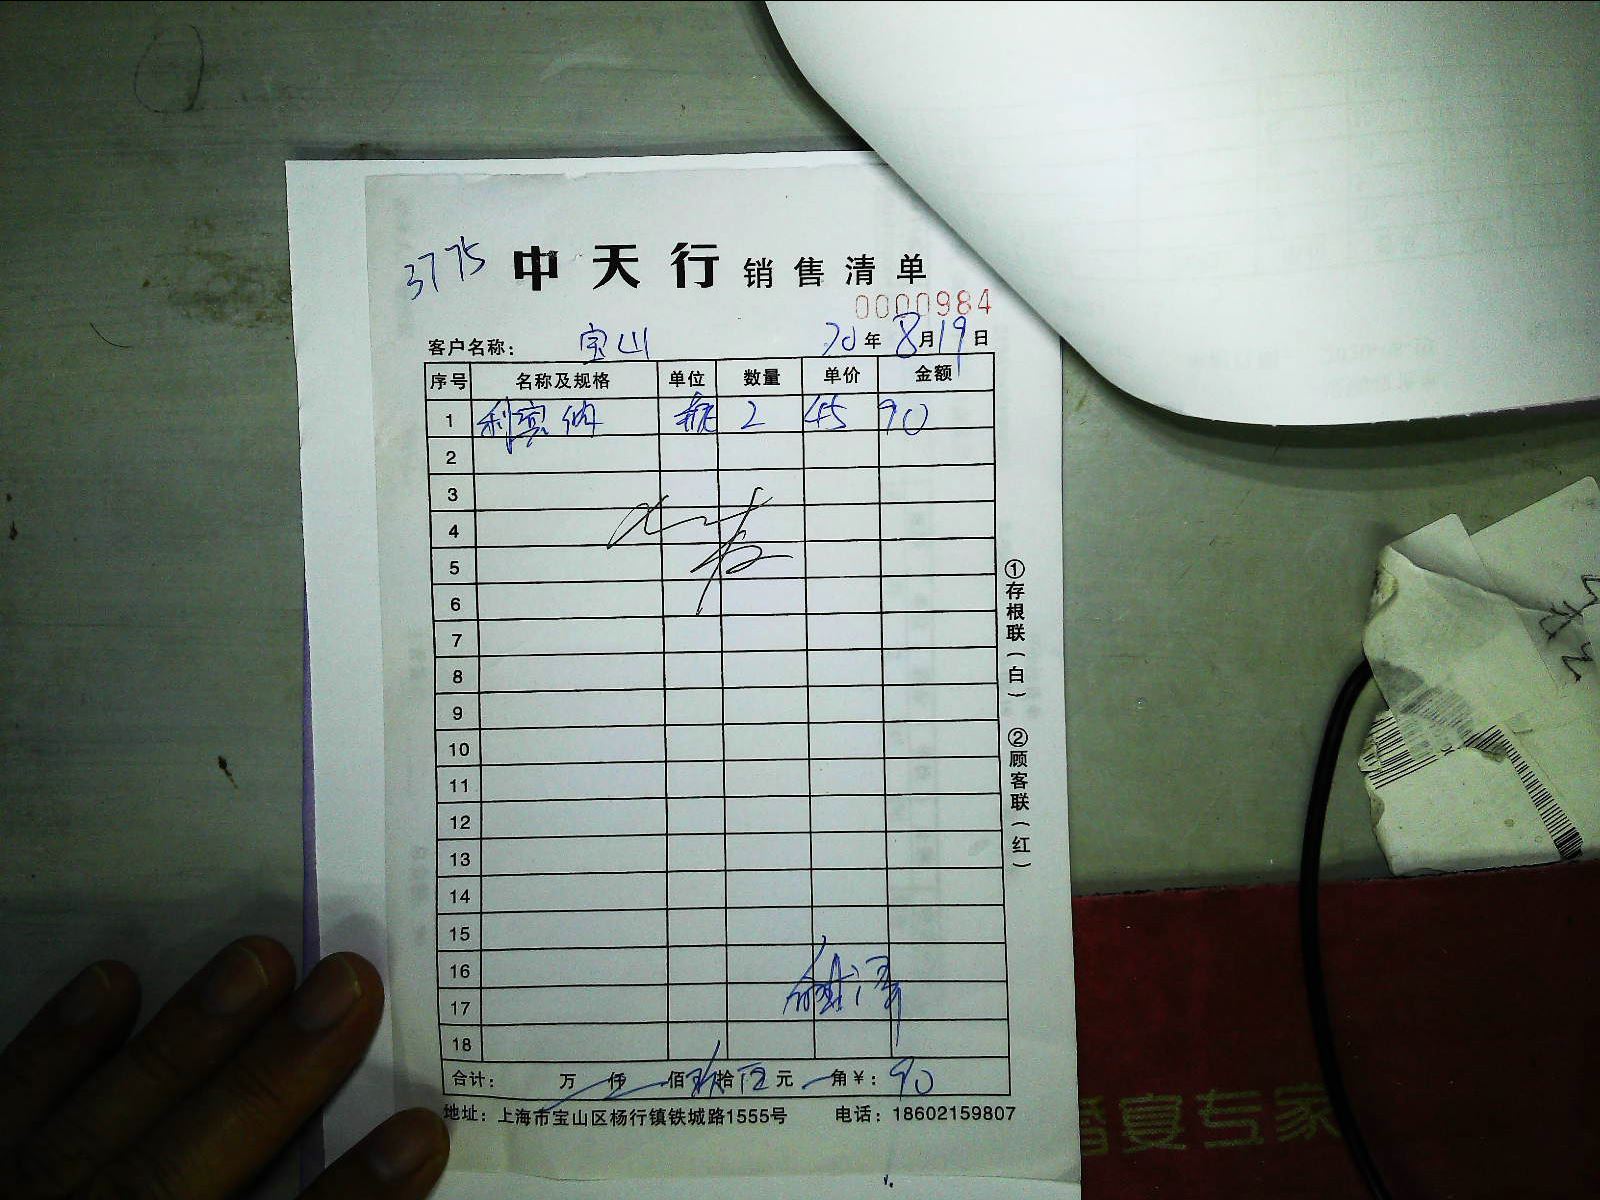 3775 中天行 销售清单
0000984
客户名称： 宝山 20年8月19日
序号 名称及规格 单位 数量 单价 金额
1 利宾纳 瓶 2 45 90
2
3
4
5
6
7
8
9
10
11
12
13
14
15
16
17
18
合计： 万 仟 佰 玖拾 元 角￥：90
地址：上海市宝山区杨行镇铁城路1555号 电话：18602159807
①存根联（白） ②顾客联（红）
婚宴专家